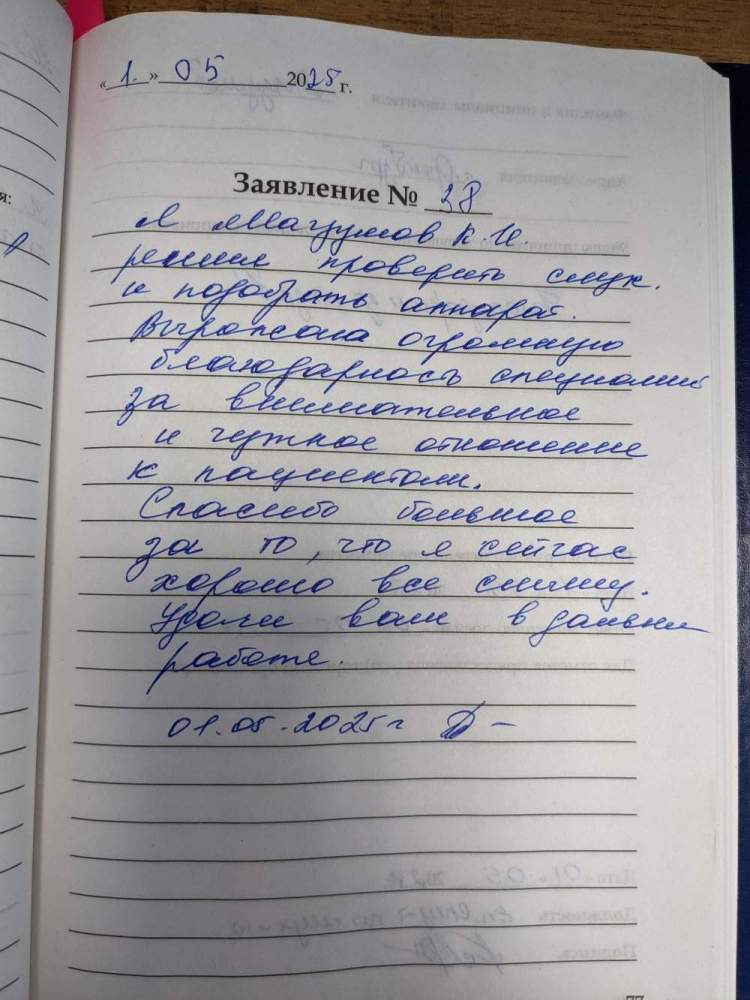 « 1. » 05 2025 г.
я:
Заявление № 38
Я Магзумов К. И.
решил проверить слух.
и подобрать аппарат.
Выражаю огромную
благодарность специалист
за внимательное
и чуткое отношение
к пациентам.
Спасибо большое
за то, что я сейчас
хорошо все слышу.
Удачи вам в дальней
работе.
01.05.2025 г